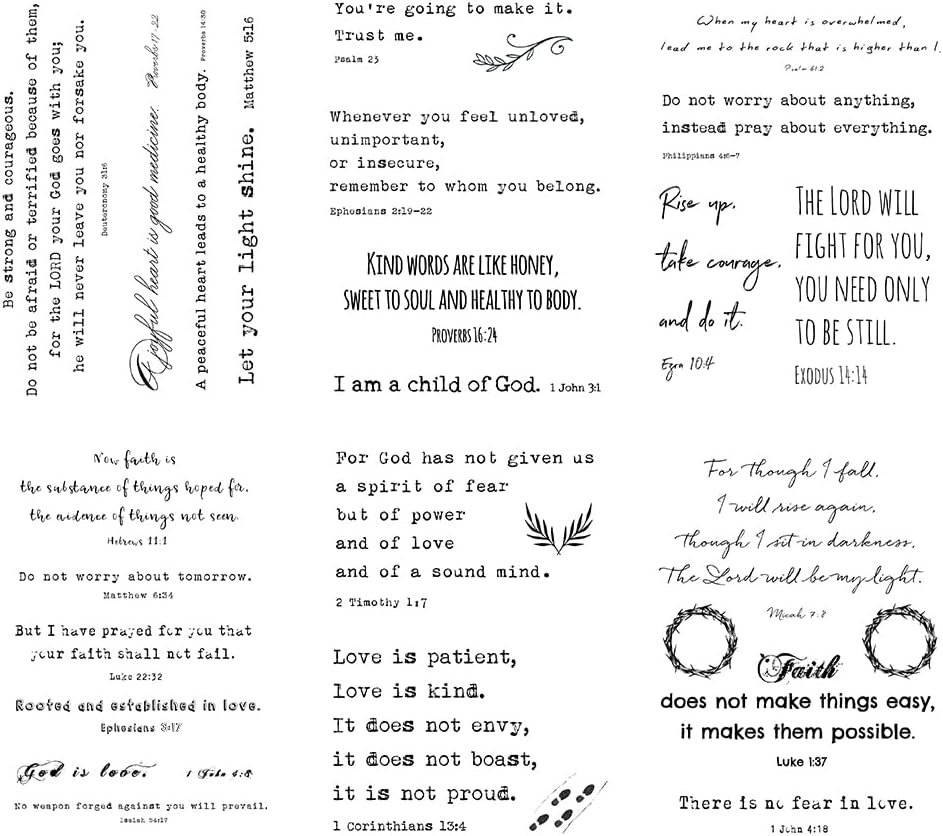 Be strong and courageous.
Do not be afraid or terrified because of them,
for the LORD your God goes with you;
he will never leave you nor forsake you.
Deuteronomy 31:6
A joyful heart is good medicine. Proverbs 17-22
A peaceful heart leads to a healthy body. Proverbs 14:30
Let your light shine. Matthew 5:16
You're going to make it.
Trust me.
Psalm 23
Whenever you feel unloved,
unimportant,
or insecure,
remember to whom you belong.
Ephesians 2:19-22
KIND WORDS ARE LIKE HONEY,
SWEET TO SOUL AND HEALTHY TO BODY.
PROVERBS 16:24
I am a child of God. 1 John 3:1
When my heart is overwhelmed,
lead me to the rock that is higher than I.
Psalm 61:2
Do not worry about anything,
instead pray about everything.
Philippians 4:6-7
Rise up,
take courage,
and do it.
Ezra 10:4
THE LORD WILL
FIGHT FOR YOU,
YOU NEED ONLY
TO BE STILL.
EXODUS 14:14
Now faith is
the substance of things hoped for,
the evidence of things not seen.
Hebrews 11:1
Do not worry about tomorrow.
Matthew 6:34
But I have prayed for you that
your faith shall not fail.
Luke 22:32
Rooted and established in love.
Ephesians 3:17
God is love. 1 John 4:8
No weapon forged against you will prevail.
Isaiah 54:17
For God has not given us
a spirit of fear
but of power
and of love
and of a sound mind.
2 Timothy 1:7
Love is patient,
love is kind.
It does not envy,
it does not boast,
it is not proud.
1 Corinthians 13:4
For though I fall,
I will rise again,
Though I sit in darkness,
The Lord will be my light.
Micah 7:8
Faith
does not make things easy,
it makes them possible.
Luke 1:37
There is no fear in love.
1 John 4:18